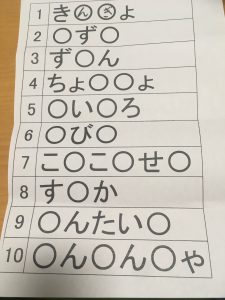 1 きんぎょ
2 ○ず○
3 ず○ん
4 ちょ○○ょ
5 ○い○ろ
6 ○び○
7 こ○こ○せ○
8 す○か
9 ○んたい○
10 ○ん○ん○ゃ